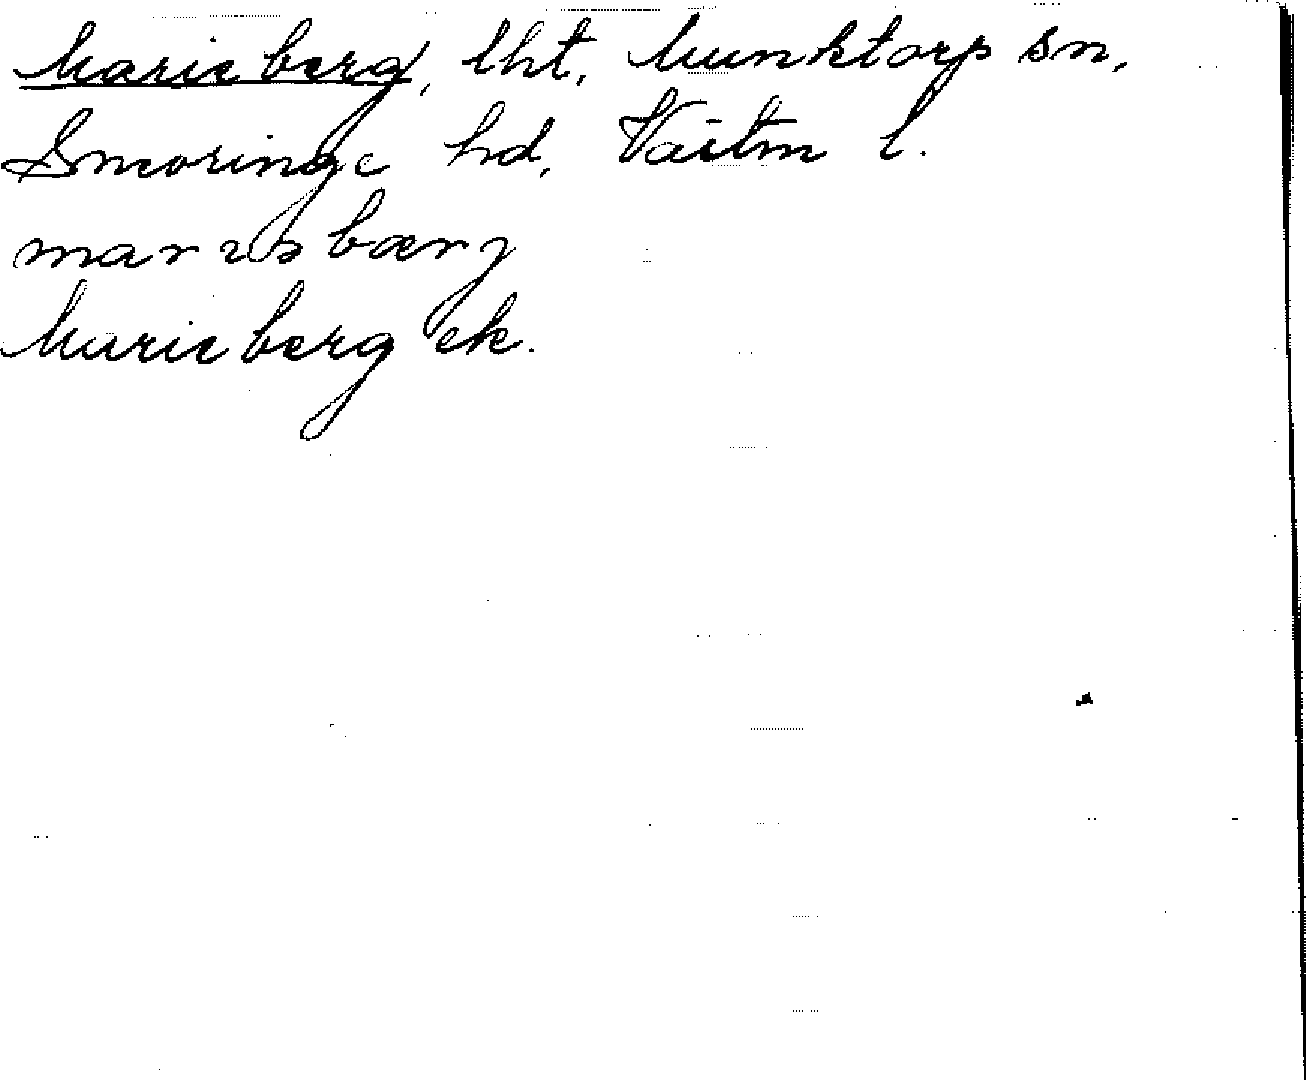 Marieberg, lht, Munktorp sn,
Snevringe hd, Västm l.
mar ɩsbærj
Marieberg ek.